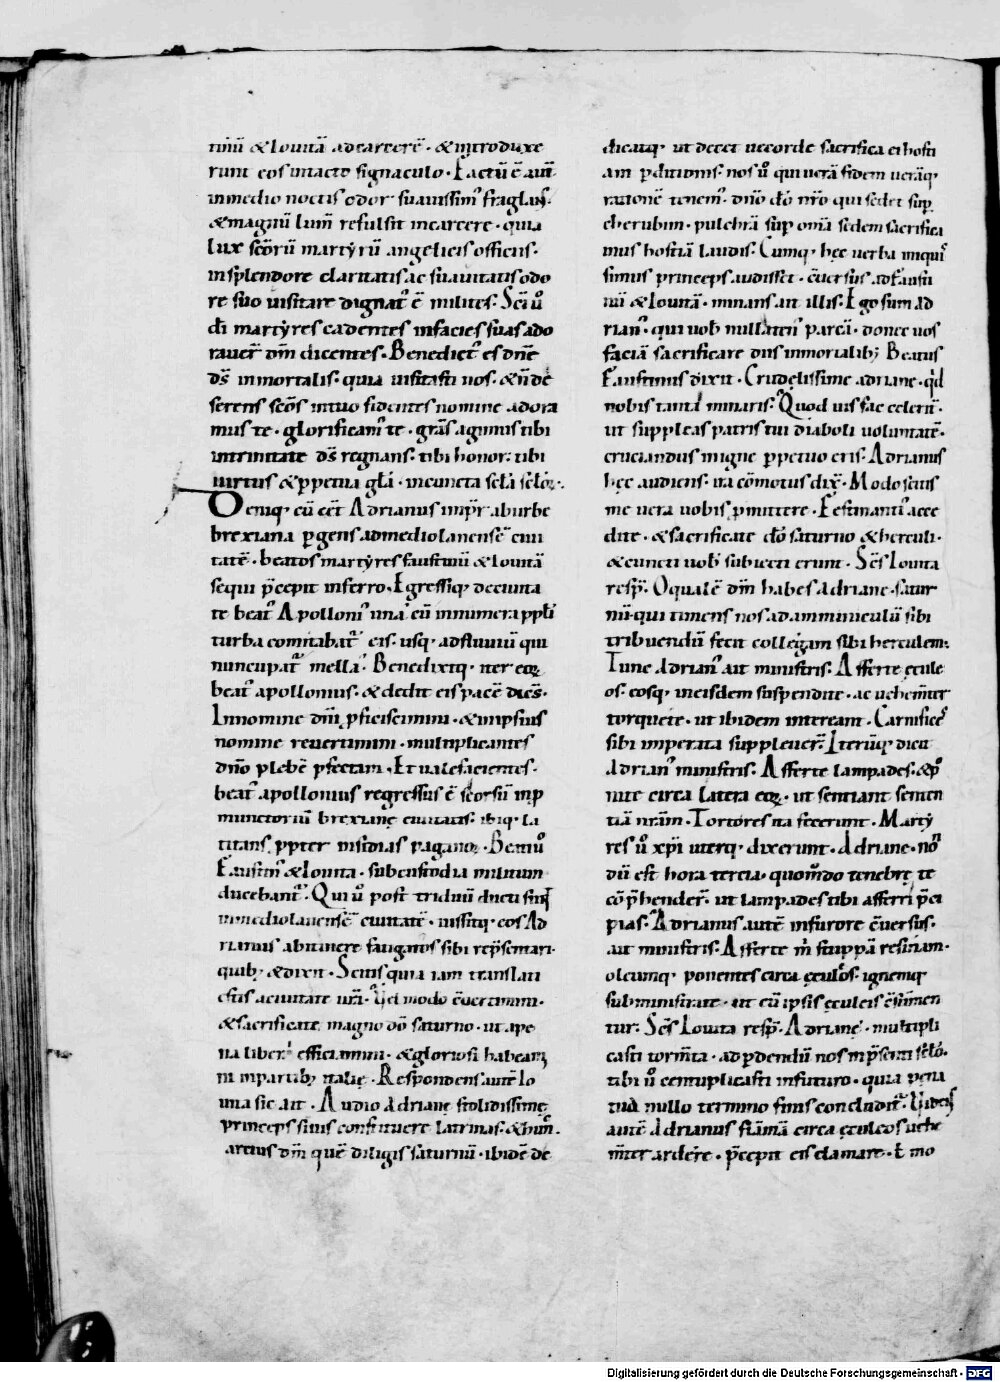 tinū & Iouitā ad carcerē · & introduxe
runt eos intacto signaculo · Factū ē autē
in medio noctis odor suauissim᾿ fraglans ·
& magnū lum̄ refulsit in carcere · quia
lux sc̄orū martyrū angelicis officiis ·
in splendore claritatis ac suauitatis odo
re suo uisitare dignat᾿ ē milites · Sc̄i ů
dī martyres cadentes in facies suas ado
rauer̄ dn̄m dicentes · Benedict᾿ es dn̄e
ds̄ inmortalis · quia uisitasti nos · & n̄ de
serens sc̄os in tuo fidentes nomine adora
mus te · glorificam᾿ te · gr̄as agimus tibi
in trinitate ds̄ regnans · tibi honor · tibi
uirtus & ꝑpetua gl̄a · in cuncta scl̄a scl̄oꝝ ·
Deniq; cū eēt Adrianus imp̄r ab urbe
brexiana ꝑgens ad mediolanensē ciui
tatē · beatos martyres faustinū & Iouitā
sequi p̄cepit in ferro · Egressiq; de ciuita
te beat᾿ Apolloni᾿ una cū innumera ppl̄i
turba comitabat᾿ eis · usq; ad fluuiū qui
nuncupat᾿ mella · Benedixitq; iter eoꝝ
beat᾿ apollonius · & dedit eis pacē dicēs ·
In nomine dn̄i ꝓficiscimini · & in ipsius
nomine reuertimini · multiplicantes
dn̄o plebē ꝑfectam · Et ualefacientes ·
beat᾿ apollonius regressus ē seorsū in p
munctoriū brexianę ciuitatis · ibiq; la
titans ꝓpter insidias paganoꝝ · Beati ů
Faustin᾿ & Iouita · sub custodia militum
ducebant᾿ · Qui ů post triduū ducti sunt
in mediolanensē ciuitatē · iussitq; eos Ad
rianus ab itinere fatigatos sibi rep̄sentari ·
quib; & dixit · Scitis quia iam translati
estis a ciuitate ur̄a · Vel modo c̄uertimini ·
& sacrificate magno dō saturno · ut a pe
na liberi efficiamini · & gloriosi habeam
ni in partib; italię · Respondens autē Io
uita sic ait · Audio Adriane stolidissime
princeps suus confituere latrinas · & hūn̄
artius dn̄m quē diligis saturnū · ibidē de
dicatiq; ut decet uecorde sacrifica ei hosti
am ꝑditionis · nos ů qui uerā fidem uerāq;
rationē tenem᾿ · dn̄o dō nr̄o qui sedet sup̄
cherubim · pulchrā sup̄ om̄a sedem sacrifica
mus hostiā laudis · Cumq; hęc uerba iniqui
simus princeps audisset · c̄uersus ad Fausti
nū & Iouitā · minans ait illis · Ego sum ad
rian᾿ · qui uob̄ nullaten᾿ parcā · donec uos
faciā sacrificare diis inmortalib; Beatus
Faustinus dixit · Crudelissime adriane · qd̄
nobis tanta minaris · Quod uis fac celeri᾿ ·
ut suppleas patris tui diaboli uoluntatē ·
cruciandus in igne ꝑpetuo eris · Adrianus
hęc audiens · ira cōmotus dix̄ · Modo scitis
me uera uobis ꝓmittere · Festinanti᾿ acce
dite · & sacrificate dō saturno & herculi ·
& cuncti uob̄ subiecti erunt · Sc̄s Iouita
resp̄ · O qualē dn̄m habes Adriane · satur
nū · qui timens nos ad amminiculū sibi
tribuendū fecit collegam sibi herculem ·
Tunc Adrian᾿ ait ministris · Afferte ęcule
os · eosq; in eisdem suspendite · ac uehem̄ter
torquete · ut ibidem intereant · Carnifices
sibi imperata suppleuer̄ · Iterūq; dicit
Adrian᾿ ministris · Afferte lampades · & po
nite circa latera eoꝝ · ut sentiant senten
tiā nr̄am · Tortores ita fecerunt · Marty
res ů xp̄i uterq; dixerunt · Adriane · non
dū est hora tercia · quom̄do tenebrę te
cōp̄hender̄ · ut lampades tibi afferri p̄ci
pias · Adrianus autē in furore c̄uersus ·
ait ministris · Afferte m̄ stuppā resinam ·
oleumq; ponentes circa ęculeos · ignemq;
subministrate · ut cū ipsis ęculeis c̄sūmen
tur · Sc̄s Iouita resp̄ · Adriane · multipli
casti torm̄ta · ad ꝑdendū nos in p̄senti scl̄o ·
tibi ů centuplicasti in futuro · quia pena
tua nullo termino finis concludit᾿ · Videns
autē Adrianus flāmā circa ęculeos uehe
m̄ter ardere · p̄cepit eis clamare · E mo